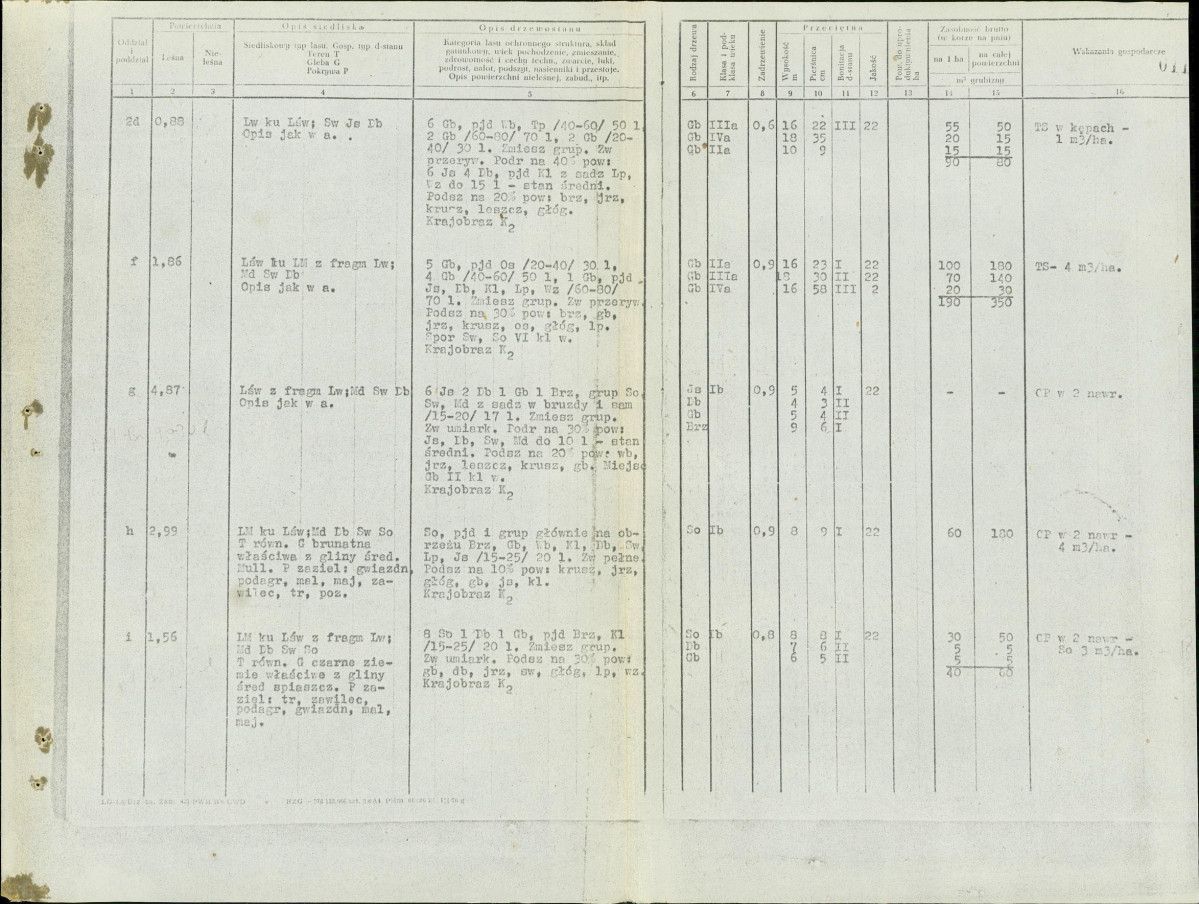 Oddział i poddział
Powierzchnia
Leśna
Nieleśna
Opis siedliska
Siedliskowy typ lasu. Gosp. typ d-stanu
Teren T
Gleba G
Pokrywa P
Opis drzewostanu
Kategoria lasu ochronnego struktura, skład
gatunkowy, wiek pochodzenie, zmieszanie,
zdrowotność i cechy techn., zwarcie, luki,
podrost, nalot, podszyt, nasienniki i przestoje.
Opis powierzchni nieleśnej, zabud., itp.
Rodzaj drzewa
Klasa i podklasa wieku
Zadrzewienie
Przeciętna
Wysokość m
Pierśnica cm
Bonitacja d-stanu
Jakość
ha
Zasobność brutto
(w korze na pniu)
na 1 ha
na całej powierzchni
m³ grubizny
Wskazania gospodarcze
011
1 2 3 4 5 6 7 8 9 10 11 12 13 14 15 16
2d 0,88 Lw ku Lśw; Sw Js Db
Opis jak w a.
6 Gb, pjd Wb, Tp /40-60/ 50 l,
2 Gb /60-80/ 70 l, 2 Gb /20-
40/ 30 l. Zmiesz grup. Zw
przeryw. Podr na 40% pow:
6 Js 4 Db, pjd Kl z sadz Lp,
Wz do 15 l - stan średni.
Podsz na 20% pow: brz, jrz,
krusz, leszcz, głóg.
Krajobraz K2
Gb IIIa 0,6 16 22 III 22 55 50 TS w kępach -
Gb IVa 18 35 20 15 1 m3/ha.
Gb IIa 10 9 15 15
90 80
f 1,86 Lśw ku LM z fragm Lw;
Md Sw Db
Opis jak w a.
5 Gb, pjd Os /20-40/ 30 l,
4 Gb /40-60/ 50 l, 1 Gb, pjd
Js, Db, Kl, Lp, Wz /60-80/
70 l. Zmiesz grup. Zw przeryw.
Podsz na 30% pow: brz, gb,
jrz, krusz, os, głóg, lp.
Spor Sw, So VI kl w.
Krajobraz K2
Gb IIa 0,9 16 23 I 22 100 180 TS- 4 m3/ha.
Gb IIIa 18 30 II 22 70 140
Gb IVa 16 58 III 2 20 30
190 350
g 4,87 Lśw z fragm Lw;Md Sw Db
Opis jak w a.
6 Js 2 Db 1 Gb 1 Brz, grup So,
Sw, Md z sadz w bruzdy i sam
/15-20/ 17 l. Zmiesz grup.
Zw umiark. Podr na 30% pow:
Js, Db, Sw, Md do 10 l - stan
średni. Podsz na 20% pow: wb,
jrz, leszcz, krusz, gb. Miejsc
Gb II kl w.
Krajobraz K2
Js Ib 0,9 5 4 I 22 - - CP w 2 nawr.
Db 4 3 II
Gb 5 4 II
Brz 9 6 I
h 2,99 LM ku Lśw;Md Db Sw So
T równ. G brunatna
właściwa z gliny śred.
Mull. P zaziel: gwiazdn,
podagr, mal, maj, za-
wilec, tr, poz.
So, pjd i grup głównie na ob-
rzeżu Brz, Gb, Wb, Kl, Db, Sw,
Lp, Js /15-25/ 20 l. Zw pełne.
Podsz na 10% pow: krusz, jrz,
głóg, gb, js, kl.
Krajobraz K2
So Ib 0,9 8 9 I 22 60 180 CP w 2 nawr -
4 m3/ha.
i 1,56 LM ku Lśw z fragm Lw;
Md Db Sw So
T równ. G czarne zie-
mie właściwe z gliny
śred spiaszcz. P za-
ziel: tr, zawilec,
podagr, gwiazdn, mal,
maj.
8 So 1 Db 1 Gb, pjd Brz, Kl
/15-25/ 20 l. Zmiesz grup.
Zw umiark. Podsz na 30% pow:
gb, db, jrz, sw, głóg, lp, wz.
Krajobraz K2
So Ib 0,8 8 8 I 22 30 50 CP w 2 nawr -
Db 7 6 II 5 5 So 3 m3/ha.
Gb 6 5 II 5 5
40 60